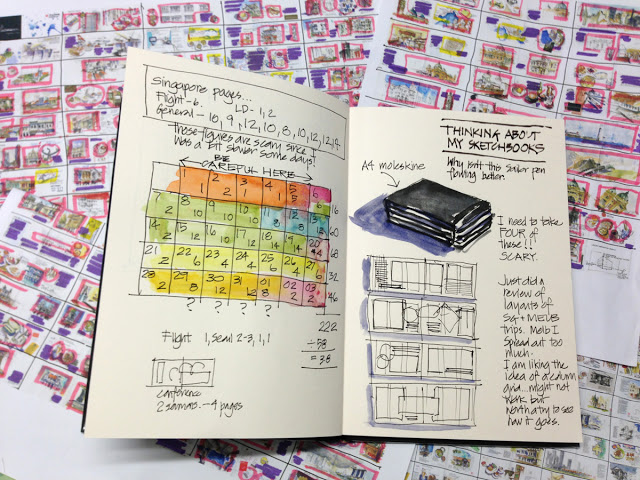 Singapore pages...
Flight - 6.   LD - 1, 2
General - 10, 9, 12, 10, 8, 10, 12, 12, 14
Those figures are scary since
I was a bit slower some days!
BE
CAREFUL HERE
1 2 3 4 5 6
1 1 1 1 5 16
8 9 10 11 12 13
2 10 10 8 60
14 15 16 17 18 19 20
2 12 10 12 14 14 4 68
21 22 23 24 25 26 27
2 6 4 4 6 4 6 32
28 29 30 31 01 02 03
2 8 12 12 8 2 2 46
? ? ? ?
222
÷ 58
= 3.8
Flight 1, seal 2-3, 1, 1
conference
2 seminars. - 4 pages
THINKING ABOUT
MY SKETCHBOOKS
A4 moleskine
Why isn't this Sailor pen
flowing better.
I need to take
FOUR of
these!!
SCARY.
Just did a
review of
layouts of
Sg + MELB
trips. Melb I
spread out too
much.
I am liking the
idea of a column
grid... might not
work but
worth a try to see
how it goes.